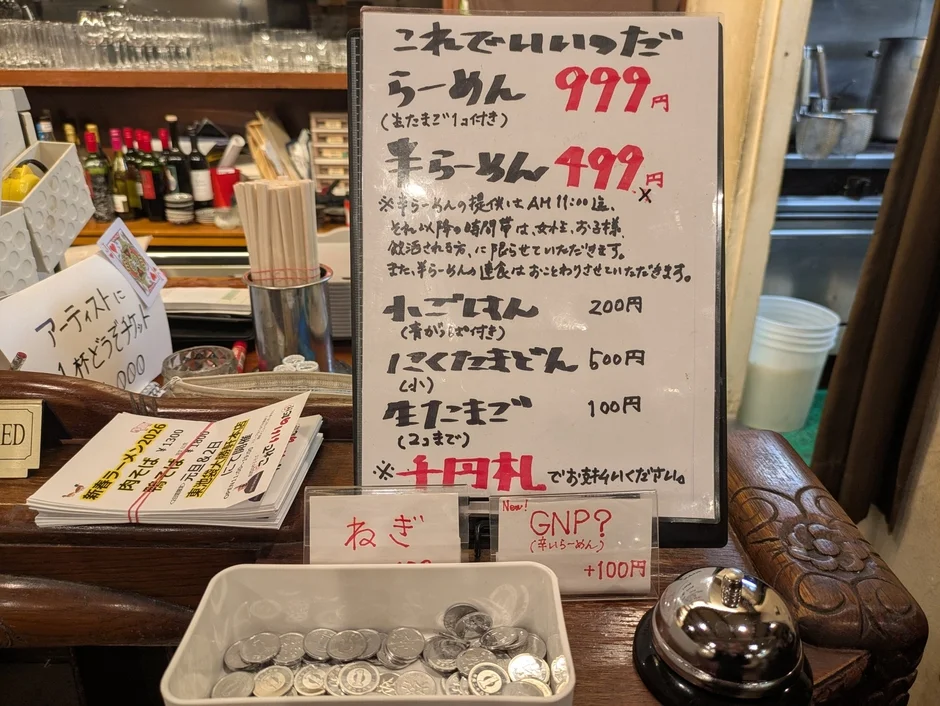 これでいいのだ
らーめん 999円
(生たまご1コ付き)
半らーめん 499円
※半らーめんの提供はAM11:00迄、
それ以降の時間帯は、女性、お子様、
飲酒される方、に限らせていただきます。
また、半らーめんの連食はおことわりさせていただきます。
小ごはん 200円
(青かっぱ付き)
にくたまどん 500円
(小)
生たまご 100円
(2コまで)
※千円札でお支払いください。
ねぎ
New!
GNP?
(辛いらーめん)
+100円
アーティストに
1杯どうぞチケット
新春ラーメン2026
肉そば ¥1300
¥1800
元日&2日
東池袋大勝軒本店
にて開催
ED